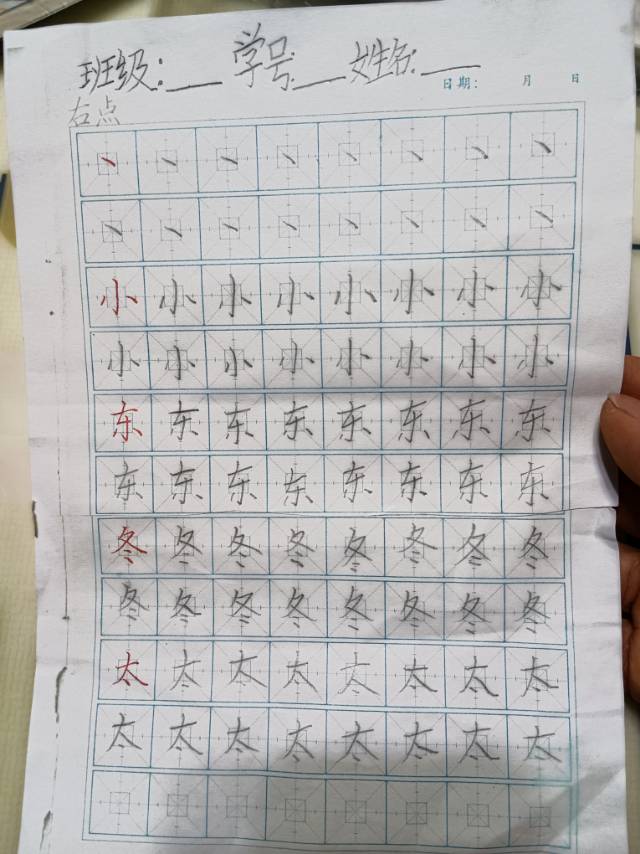 班级：__ 学号：__ 姓名：__
日期： 月 日
右点
丶 丶 丶 丶 丶 丶 丶 丶
丶 丶 丶 丶 丶 丶 丶 丶
小 小 小 小 小 小 小 小
小 小 小 小 小 小 小 小
东 东 东 东 东 东 东 东
东 东 东 东 东 东 东 东
冬 冬 冬 冬 冬 冬 冬 冬
冬 冬 冬 冬 冬 冬 冬 冬
太 太 太 太 太 太 太 太
太 太 太 太 太 太 太 太